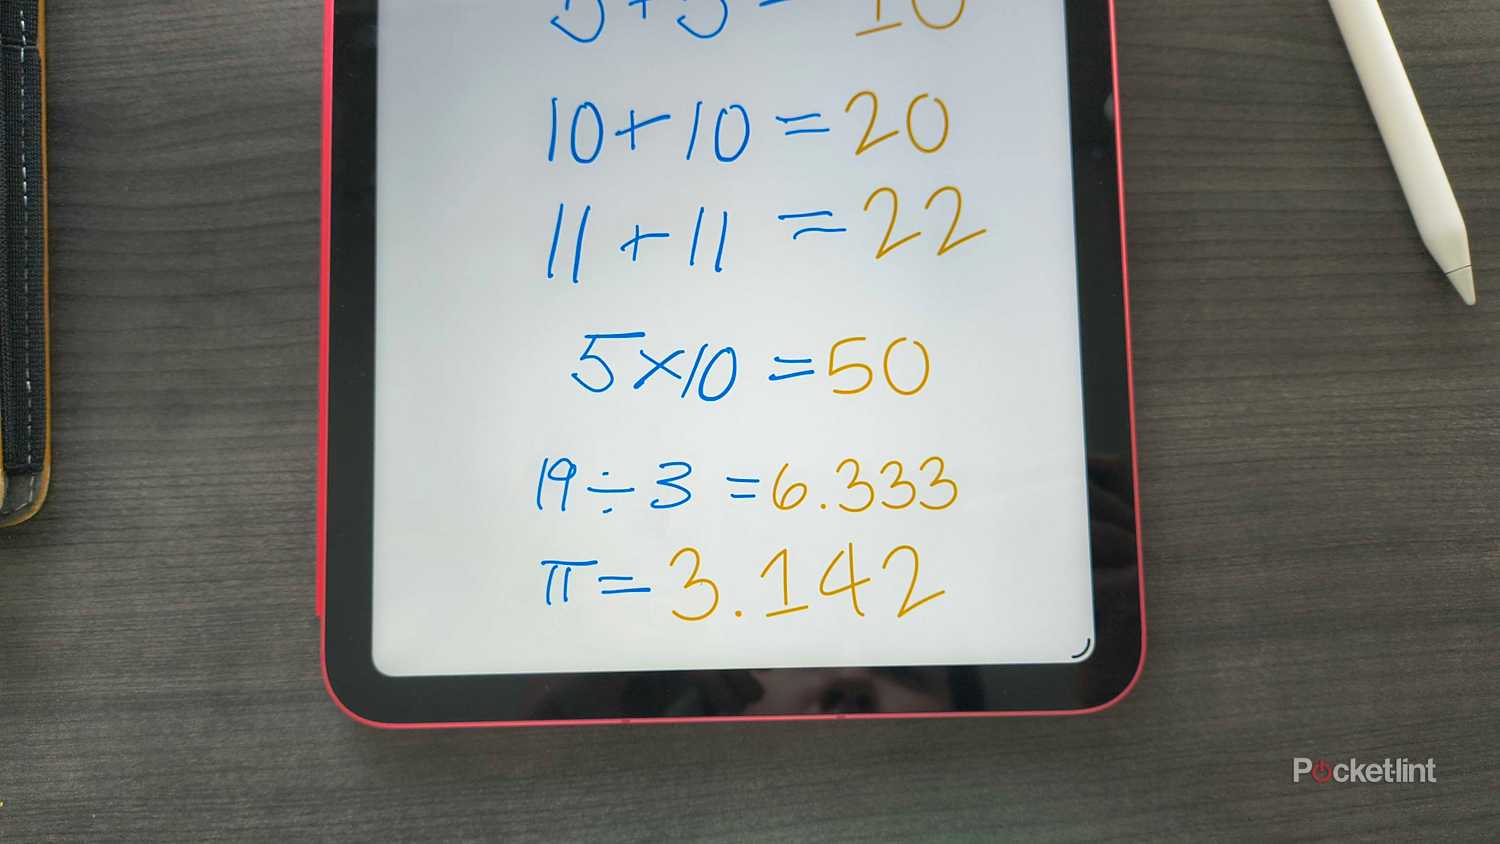 5+5=10
10+10=20
11+11=22
5×10=50
19÷3=6.333
π=3.142
Pocket-lint